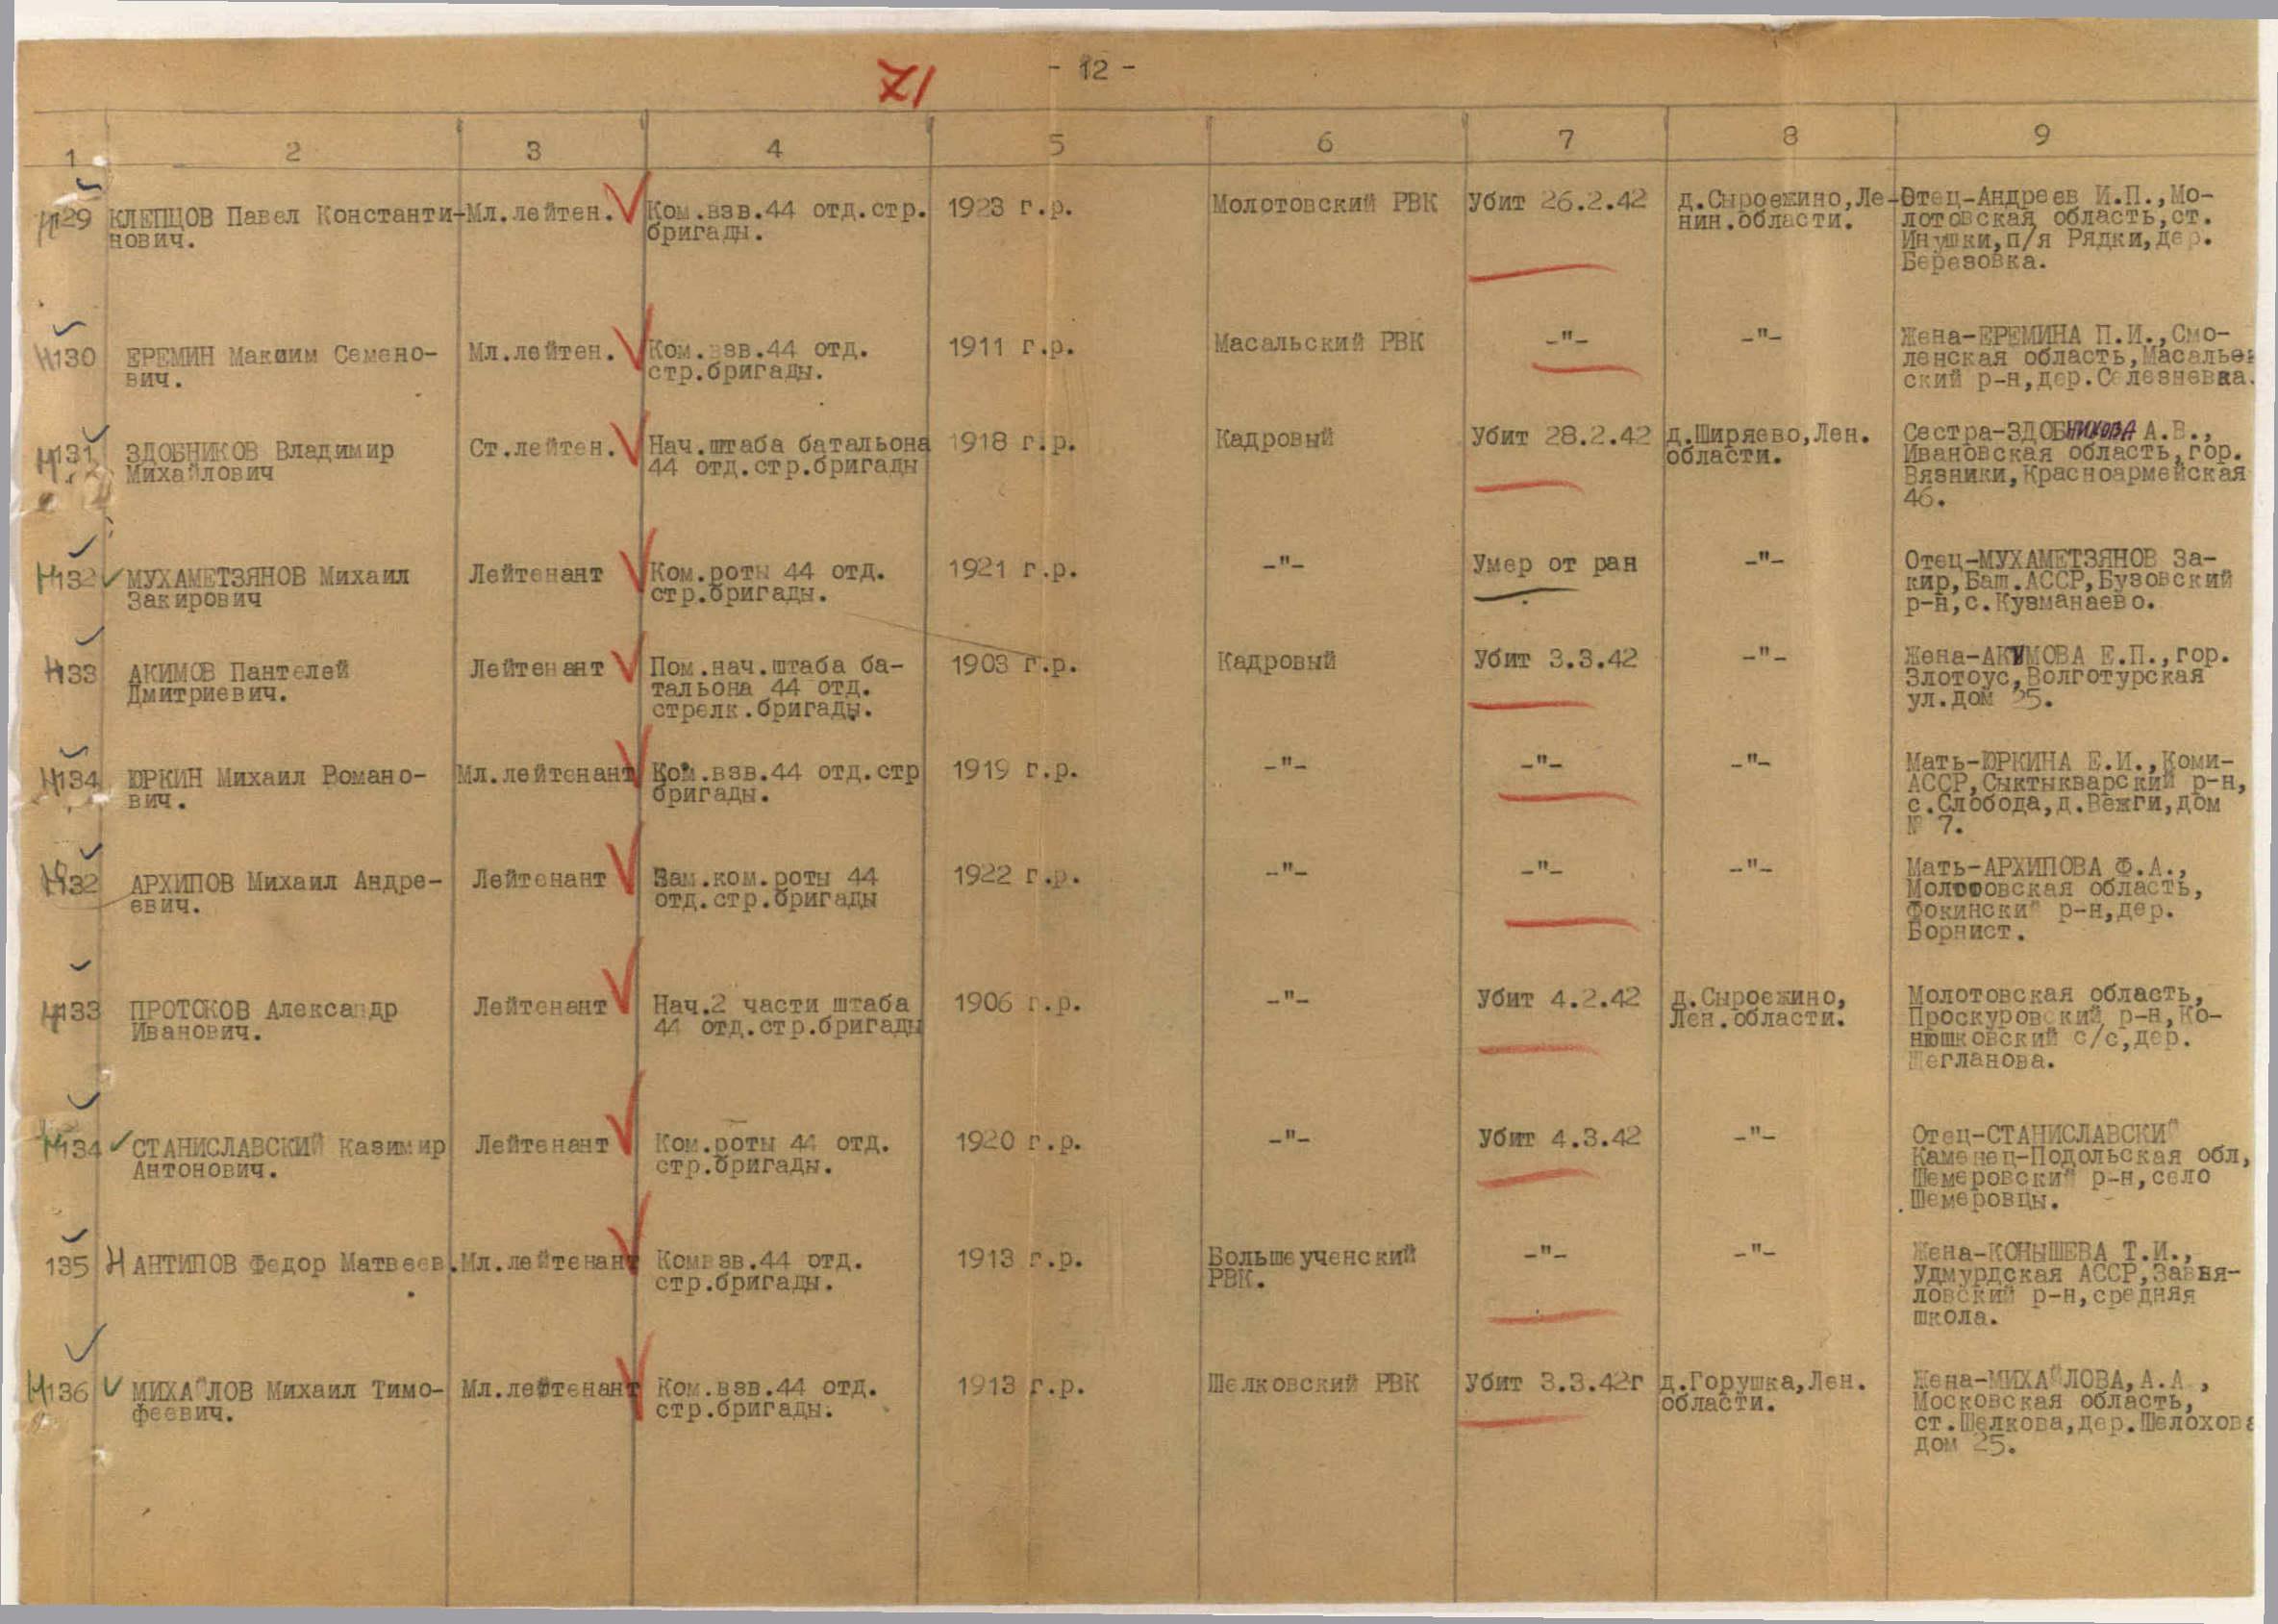 71
- 12 -
1 2 3 4 5 6 7 8 9
129 КЛЕПЦОВ Павел Константи- Мл.лейтен. Ком.взв.44 отд.стр. 1923 г.р. Молотовский РВК Убит 26.2.42 д.Сыроежино,Ле- Отец-Андреев И.П.,Мо-
нович. бригады. нин.области. лотовская область,ст.
Инушки,п/я Рядки,дер.
Березовка.
Н130 ЕРЕМИН Максим Семено- Мл.лейтен. Ком.взв.44 отд. 1911 г.р. Масальский РВК -"- -"- Жена-ЕРЕМИНА П.И.,Смо-
вич. стр.бригады. ленская область,Масаль
ский р-н,дер.Селезневка.
Н131 ЗДОБНИКОВ Владимир Ст.лейтен. Нач.штаба батальона 1918 г.р. Кадровый Убит 28.2.42 д.Ширяево,Лен. Сестра-ЗДОБНИКОВА А.В.,
Михайлович 44 отд.стр.бригады области. Ивановская область,гор.
Вязники,Красноармейская
46.
Н132 МУХАМЕТЗЯНОВ Михаил Лейтенант Ком.роты 44 отд. 1921 г.р. -"- Умер от ран -"- Отец-МУХАМЕТЗЯНОВ За-
Закирович стр.бригады. кир,Баш.АССР,Бузовский
р-н,с.Кузманаево.
Н133 АКИМОВ Пантелей Лейтенант Пом.нач.штаба ба- 1903 г.р. Кадровый Убит 3.3.42 -"- Жена-АКИМОВА Е.П.,гор.
Дмитриевич. тальона 44 отд. Злотоус,Волготурская
стрелк.бригады. ул.дом 35.
Н134 ЮРКИН Михаил Романо- Мл.лейтенант Ком.взв.44 отд.стр 1919 г.р. -"- -"- -"- Мать-ЮРКИНА Е.И.,Коми-
вич. бригады. АССР,Сыктыкварский р-н,
с.Слобода,д.Вежги,дом
№ 7.
Н132 АРХИПОВ Михаил Андре- Лейтенант Зам.ком.роты 44 1922 г.р. -"- -"- -"- Мать-АРХИПОВА Ф.А.,
евич. отд.стр.бригады Молотовская область,
Фокинский р-н,дер.
Борнист.
Н133 ПРОТОКОВ Александр Лейтенант Нач.2 части штаба 1906 г.р. -"- Убит 4.2.42 д.Сыроежино, Молотовская область,
Иванович. 44 отд.стр.бригады Лен.области. Проскуровский р-н,Ко-
нюшковский с/с,дер.
Щегланова.
Н134 СТАНИСЛАВСКИЙ Казимир Лейтенант Ком.роты 44 отд. 1920 г.р. -"- Убит 4.3.42 -"- Отец-СТАНИСЛАВСКИЙ
Антонович. стр.бригады. Каменец-Подольская обл,
Шемеровский р-н,село
Шемеровцы.
135 Н АНТИПОВ Федор Матвеев. Мл.лейтенант Комвзв.44 отд. 1913 г.р. Большеученский -"- -"- Жена-КОНЫШЕВА Т.И.,
стр.бригады. РВК. Удмурдская АССР,Завья-
ловский р-н,средняя
школа.
Н136 МИХАЙЛОВ Михаил Тимо- Мл.лейтенант Ком.взв.44 отд. 1913 г.р. Шелковский РВК Убит 3.3.42г д.Горушка,Лен. Жена-МИХАЙЛОВА,А.А.,
феевич. стр.бригады. области. Московская область,
ст.Шелкова,дер.Шелохова
дом 25.